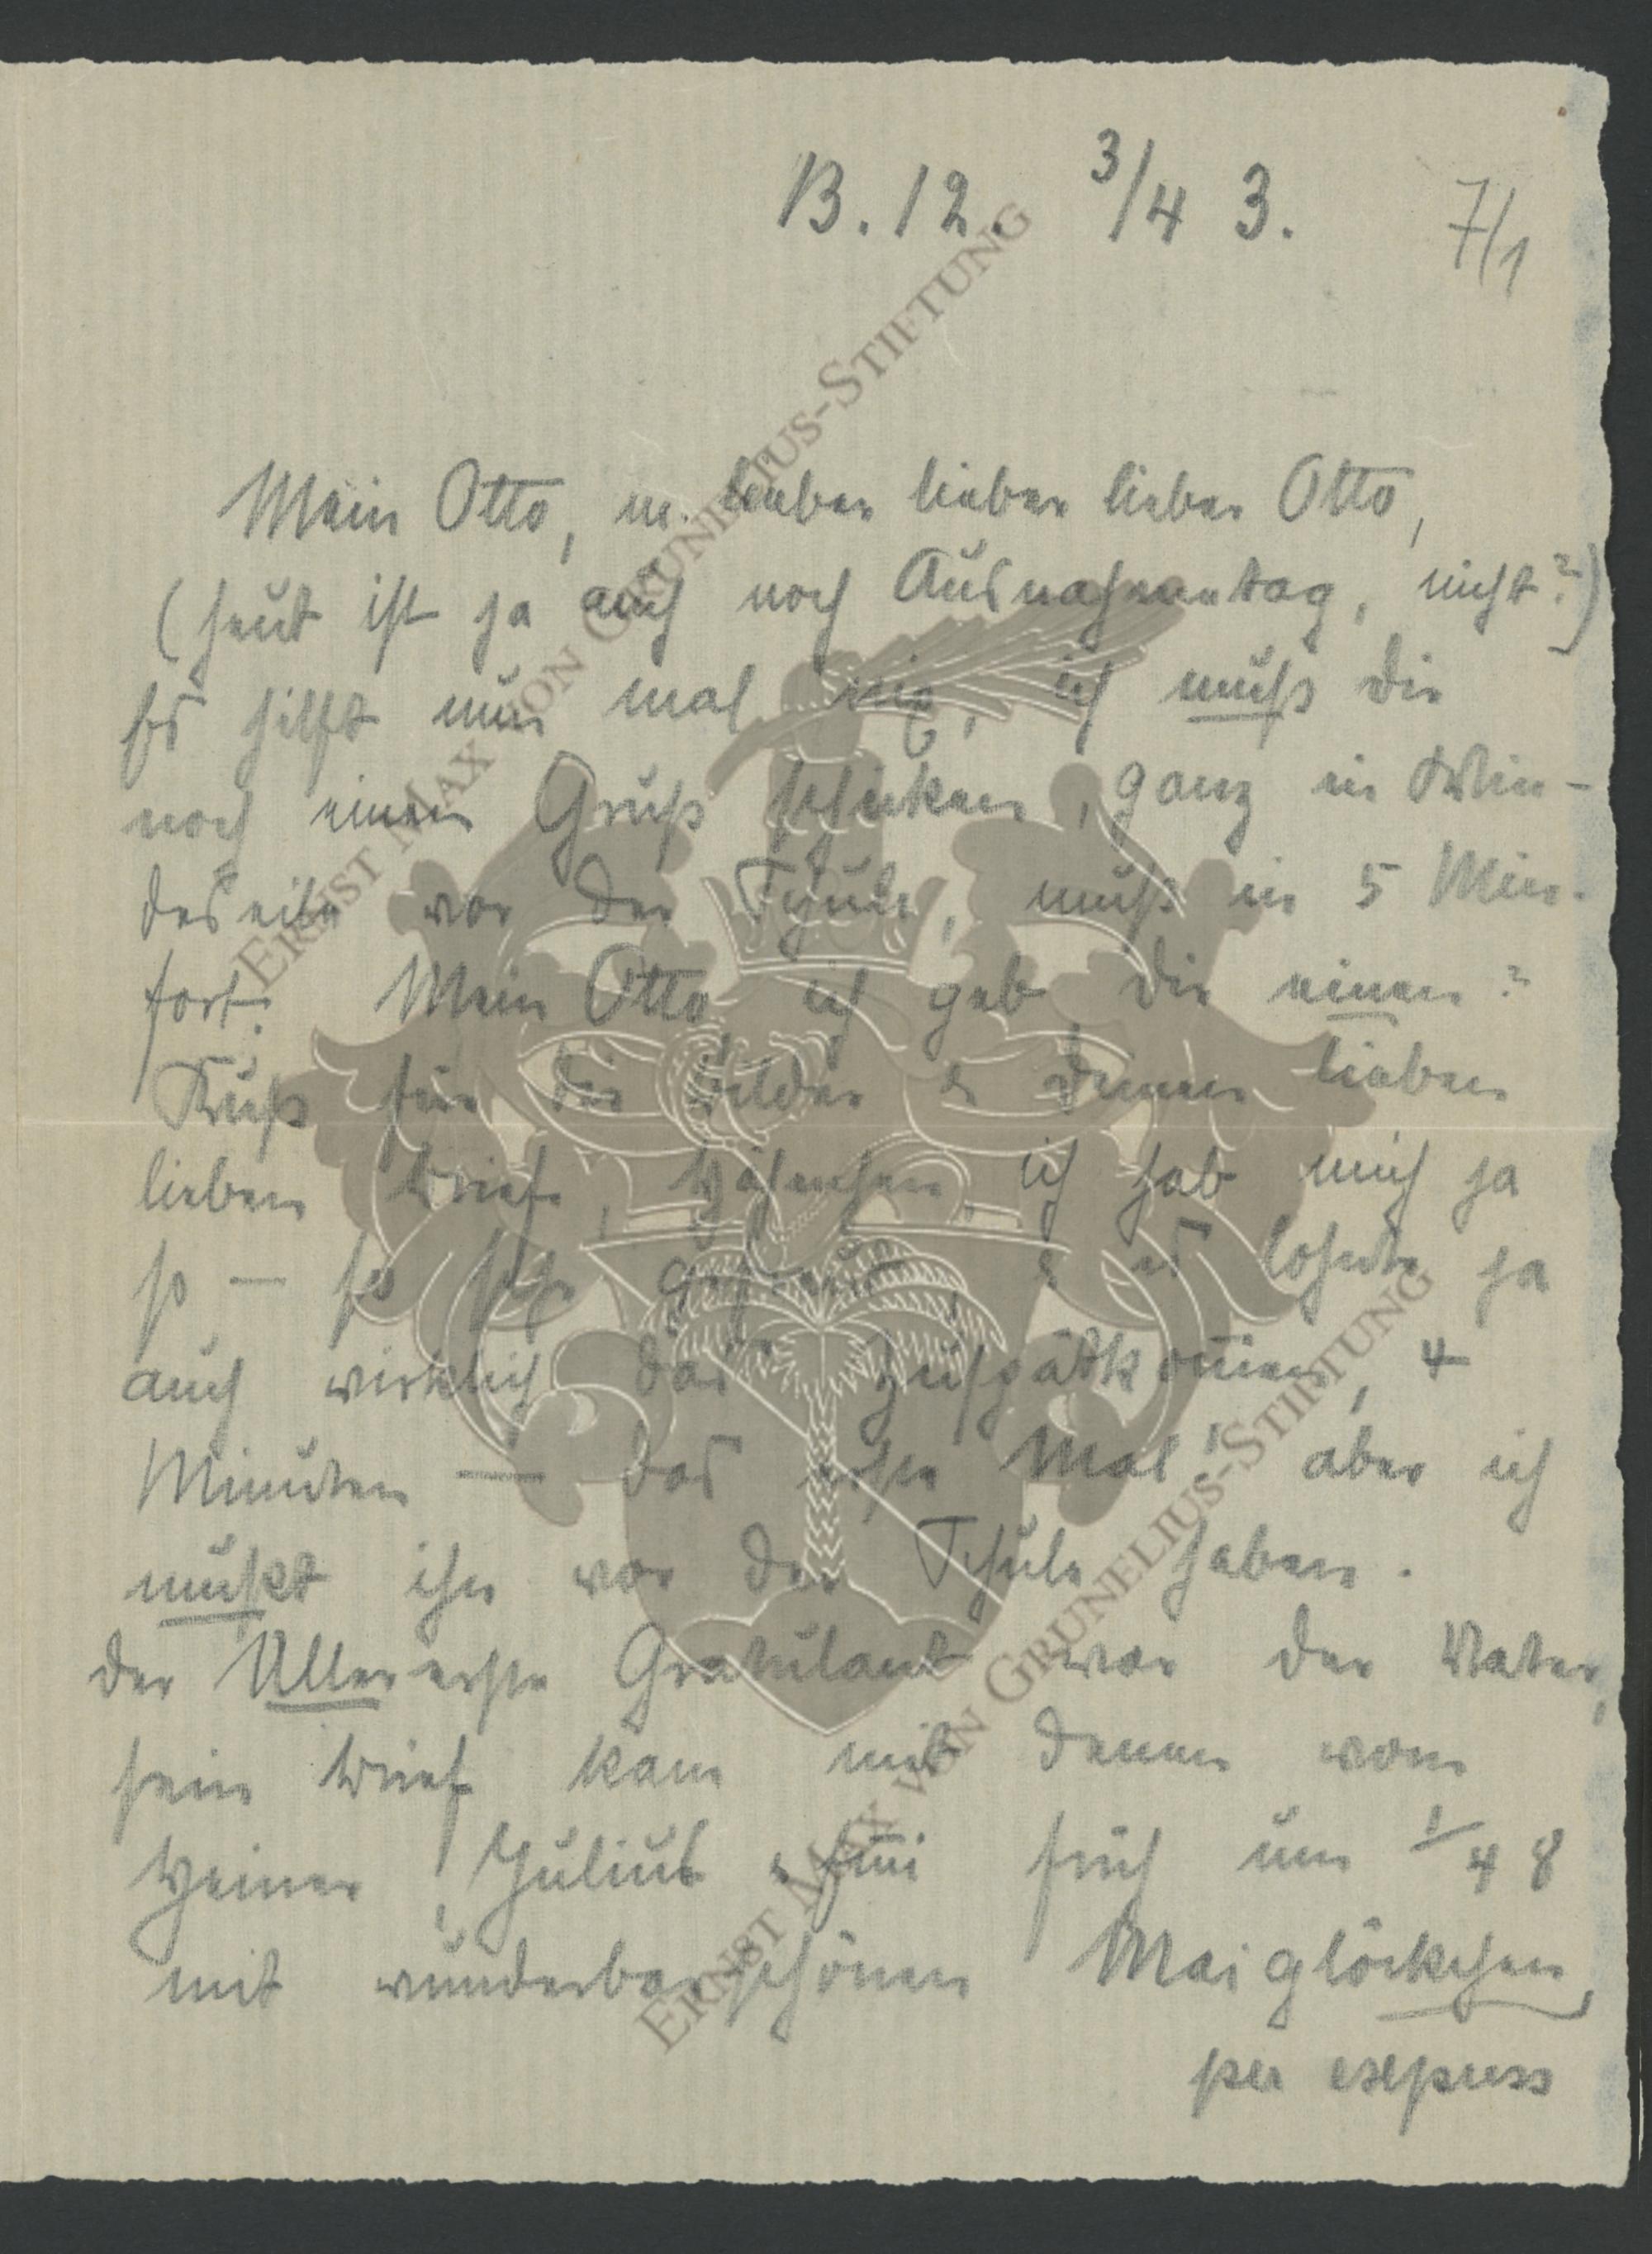 13. 12. 3/4 3. 7/1
Mein Otto, m. lieber lieber lieber Otto,
(heut ist ja auch noch Ausnahmetag, nicht?)
Es hilft nun mal nix, ich muß dir
noch einen Gruß schicken, ganz in Win-
deseile vor der Schule, muß in 5 Min.
fort. Mein Otto ich geb dir einen?
Kuß für die Bilder & deinen lieben
lieben Brief, ich hab mich ja
so — so gefreut, & es lohnte ja
auch wirklich das Zuspätkom̅en, 4
Minuten — das erste Mal! aber ich
mußt ihn vor der Schule haben.
der Allererste Gratulant war der Vater,
sein Brief kam mit deinem vom
Heiner, Julius & früh um 1/4 8
mit wunderbarschönen Maiglöckchen,
per express
ERNST MAX VON GRUNELIUS-STIFTUNG
ERNST MAX VON GRUNELIUS-STIFTUNG